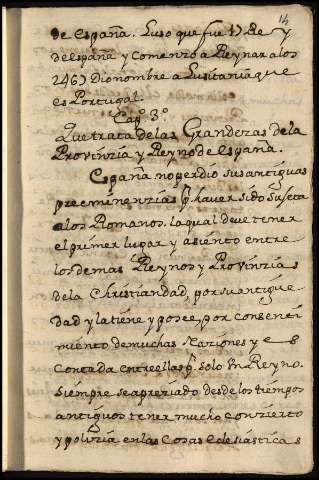 14
de españa. Luso que fue 17 Rey
de españa y Comenzo a Reynar alos
2467 Dio nombre a Lusitania que
es Portugal.
Capº 3º
Que trata de las Grandezas de la
Provinzia y Reyno de España.
España no perdio sus antiguas
preeminenzias p haver sido Sujeta
alos Romanos. la qual deve tener
el primer lugar y asiento entre
los demas Reynos y Provinzias
dela Christiandad, por su antigüe
dad y la tiene y posee, por consenti
miento de muchas Naziones y es
Contada entre ellas p solo Un Reyno.
Siempre se apreziado desde los tiempos
antiguos tener mucho conzierto
y polizia en las Cosas eclesiasticas